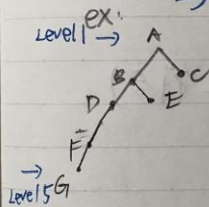 ex:
Level 1 → A
B C
D E
F
→ G
Level 5